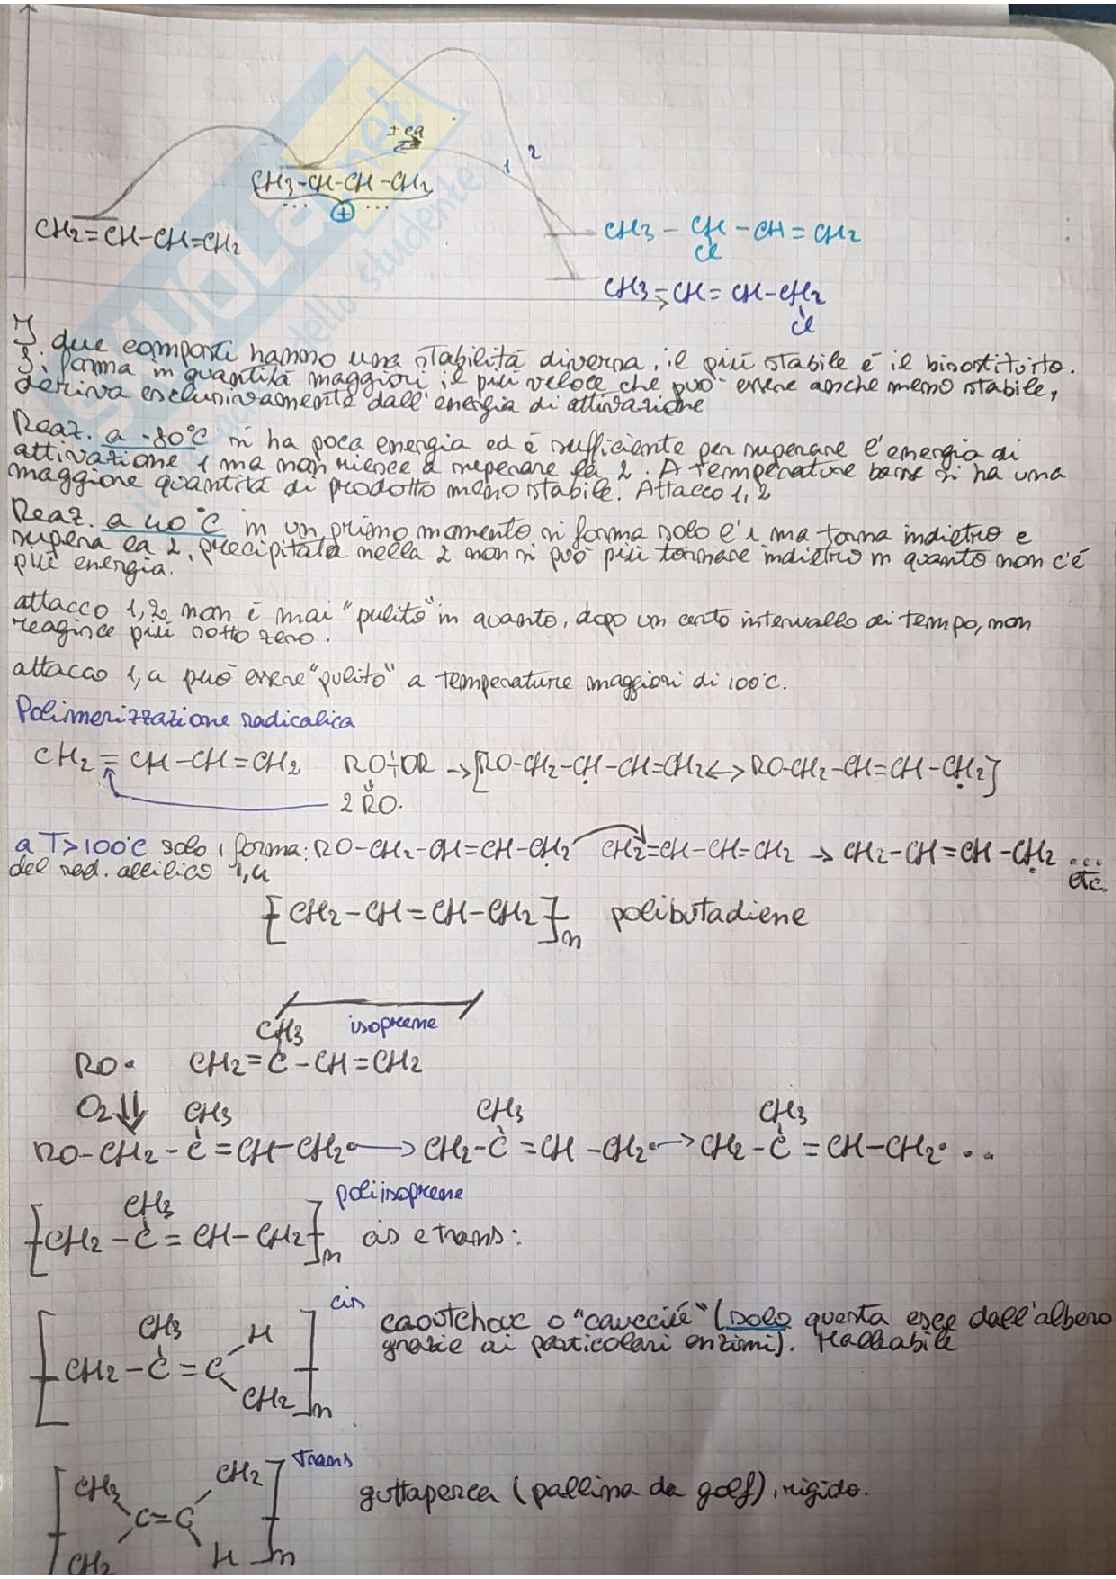 ± Cl
1 2
CH3-CH-CH-CH2
⊕
CH2=CH-CH=CH2
CH3 - CH - CH = CH2
Cl
CH3-CH=CH-CH2
Cl
I due composti hanno una stabilità diversa, il più stabile è il bisostituito.
Si forma in quantità maggiori il più veloce che può essere anche meno stabile,
deriva esclusivamente dall'energia di attivazione
Reaz. a -80°C si ha poca energia ed è sufficiente per superare l'energia di
attivazione 1 ma non riesce a superare la 2. A temperature basse si ha una
maggiore quantità di prodotto meno stabile. Attacco 1,2
Reaz. a 40°C in un primo momento si forma solo l'1 ma torna indietro e
supera la 2, precipitata nella 2 non si può più tornare indietro in quanto non c'è
più energia.
attacco 1,2 non è mai "pulito" in quanto, dopo un certo intervallo di tempo, non
reagisce più sotto zero.
attacco 1,4 può essere "pulito" a temperature maggiori di 100°C.
Polimerizzazione radicalica
CH2 = CH-CH=CH2 RO÷OR → [RO-CH2-CH-CH=CH2 ↔ RO-CH2-CH=CH-CH2]
2 RO·
a T>100°C solo 1 forma: RO-CH2-CH=CH-CH2 CH2=CH-CH=CH2 → CH2-CH=CH-CH2 ...
del rad. allilico 1,4 etc.
[CH2-CH=CH-CH2]n polibutadiene
CH3 isoprene
RO· CH2=C-CH=CH2
O2 ⇓ CH3 CH3 CH3
RO-CH2-C=CH-CH2· → CH2-C=CH-CH2· → CH2-C=CH-CH2· ...
CH3 poliisoprene
[CH2-C=CH-CH2]n cis e trans:
cis
CH3 H caoutchouc o "caucciù" (solo questa esce dall'albero
grazie ai particolari enzimi). Malleabile
CH2-C=C
CH2 n
trans
CH3 CH2 guttaperca (pallina da golf), rigido.
C=C
CH2 H n